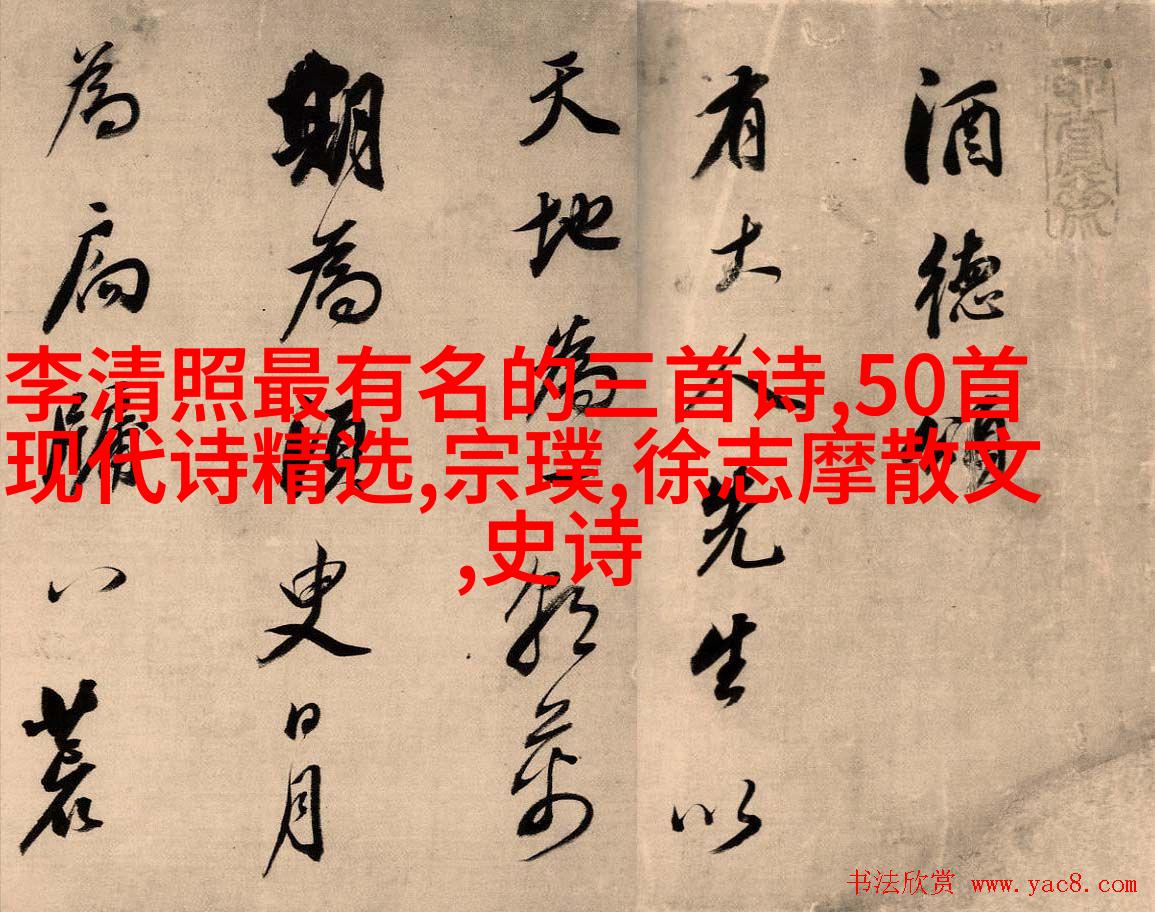 酒德頌
有大人先生以
天地為一朝萬
期為須臾日月
為扃牖八荒
李清照最有名的三首诗,50首
现代诗精选,宗璞,徐志摩散文
,史诗
书法欣赏 www.yac8.com